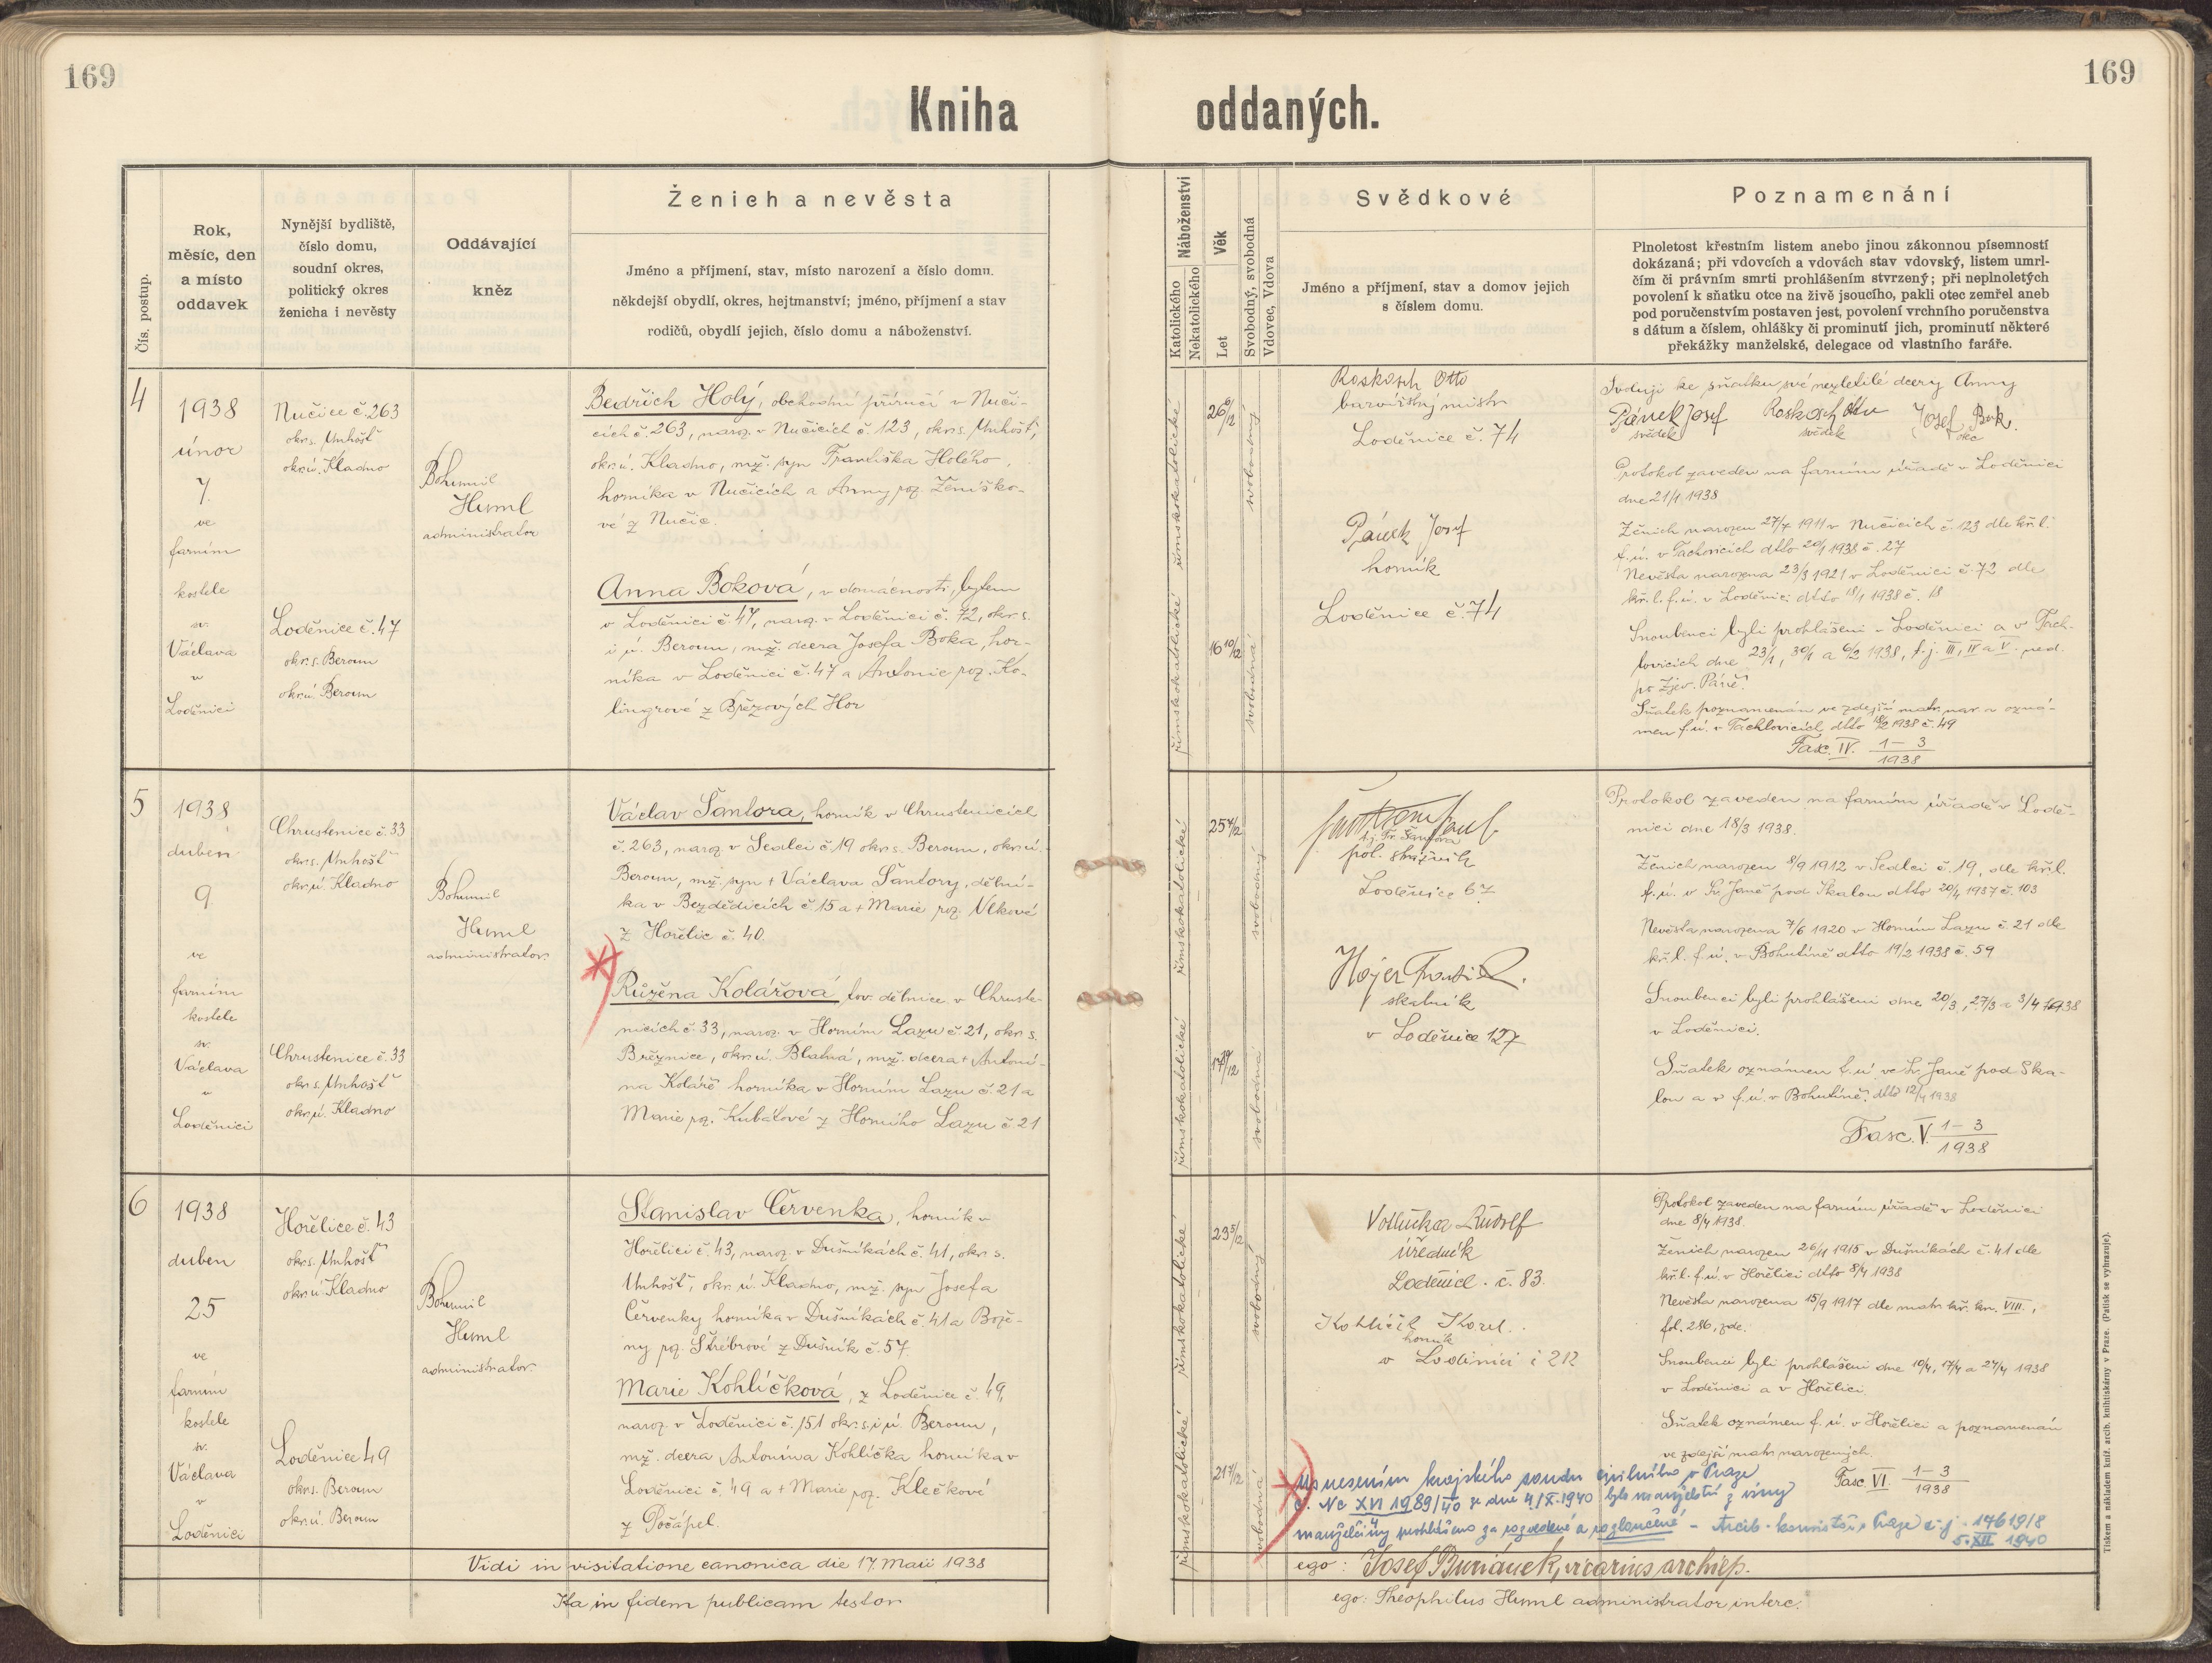 169
169
Kniha oddaných.
Čís. postup.
Rok,
měsíc, den
a místo
oddavek
Nynější bydliště,
číslo domu,
soudní okres,
politický okres
ženicha i nevěsty
Oddávající
kněz
Ženich a nevěsta
Jméno a příjmení, stav, místo narození a číslo domu.
někdejší obydlí, okres, hejtmanství; jméno, příjmení a stav
rodičů, obydlí jejich, číslo domu a náboženství.
Náboženství
Katolického
Nekatolického
Věk
Let
Svobodný, svobodná
Vdovec, Vdova
Svědkové
Jméno a příjmení, stav a domov jejich
s číslem domu.
Poznamenání
Plnoletost křestním listem anebo jinou zákonnou písemností
dokázaná; při vdovcích a vdovách stav vdovský, listem umrl-
čím či právním smrti prohlášením stvrzený; při neplnoletých
povolení k sňatku otce na živě jsoucího, pakli otec zemřel aneb
pod poručenstvím postaven jest, povolení vrchního poručenstva
s dátum a číslem, ohlášky či prominutí jich, prominutí některé
překážky manželské, delegace od vlastního faráře.
4
1938
únor
7.
ve
farním
kostele
sv.
Václava
v
Loděnici
Nučice č. 263
okr. s. Unhošť
okr. ú. Kladno
Loděnice č. 47
okr. s. Beroun
okr. ú. Beroun
Bohumil
Huml
administrator
Bedřich Holý, obchodní příručí v Nuči-
cích č. 263, naroz. v Nučicích č. 123, okr. s. Unhošť,
okr. ú. Kladno, mž. syn Františka Holého,
horníka v Nučicích a Anny roz. Ženíško-
vé z Nučic.
Anna Boková, v domácnosti, bytem
v Loděnici č. 47, naroz. v Loděnici č. 72, okr. s.
i ú. Beroun, mž. dcera Josefa Boka, hor-
níka v Loděnici č. 47 a Antonie roz. Ko-
lingrové z Březových Hor
římskokatolické
římskokatolické
26 6/12
16 10/12
svobodný
svobodná
Roskosch Otto
barvířský mistr
Loděnice č. 74
Pánek Josef
horník
Loděnice č. 74
Svoluji ke sňatku své nezletilé dcery Anny
Pánek Josef Roskosch Otto Josef Bok.
svědek svědek otec
Protokol zaveden na farním úřadě v Loděnici
dne 21/1 1938
Ženich narozen 27/7 1911 v Nučicích č. 123 dle kř. l.
f. ú. v Tachovicích dtto 20/1 1938 č. 27
Nevěsta narozena 23/3 1921 v Loděnici č. 72 dle
kř. l. f. ú. v Loděnici dtto 18/1 1938 č. 18
Snoubenci byli prohlášeni v Loděnici a v Tach-
lovicích dne 23/1, 30/1 a 6/2 1938, t. j. III, IV a V. ned.
po Zjev. Páně.
Sňatek poznamenán ve zdejší matr. nar. a ozná-
men f. ú. v Tachlovicích dtto 18/2 1938 č. 49
Fasc. IV. 1-3
1938
5
1938
duben
9
ve
farním
kostele
sv.
Václava
v
Loděnici
Chrustenice č. 33
okr. s. Unhošť
okr. ú. Kladno
Chrustenice č. 33
okr. s. Unhošť
okr. ú. Kladno
Bohumil
Huml
administrator
Václav Šantora, horník v Chrustenicích
č. 263, naroz. v Sedlci č. 19 okr. s. Beroun, okr. ú.
Beroun, mž. syn + Václava Šantory, dělní-
ka v Bezdědicích č. 15 a + Marie roz. Vlkové
z Hořelic č. 40
Růžena Kolářová tov. dělnice v Chruste-
nicích č. 33, naroz. v Horním Lazu č. 21, okr. s.
Březnice, okr. ú. Blatná, mž. dcera + Antoní-
na Koláře horníka v Horním Lazu č. 21 a
Marie roz. Kubátové z Horního Lazu č. 21
římskokatolické
římskokatolické
25 7/12
17 10/12
svobodný
svobodná
t. j. Fr. Šantora
pol. strážník
Loděnice 67
Hojer
skalník
v Loděnice 127
Protokol zaveden na farním úřadě v Lodě-
nici dne 18/3 1938.
Ženich narozen 8/9 1912 v Sedlci č. 19, dle kř. l.
f. ú. v Sv. Janě pod Skalou dtto 20/4 1937 č. 103
Nevěsta narozena 7/6 1920 v Horním Lazu č. 21 dle
kř. l. f. ú. v Bohutíně dtto 19/2 1938 č. 59
Snoubenci byli prohlášeni dne 20/3, 27/3 a 3/4 1938
v Loděnici.
Sňatek oznámen f. ú. ve Sv. Janě pod Ska-
lou a v f. ú. v Bohutíně, dtto 12/4 1938
Fasc. V. 1-3
1938
6
1938
duben
25
ve
farním
kostele
sv.
Václava
v
Loděnici
Hořelice č. 43
okr. s. Unhošť
okr. ú. Kladno
Loděnice 49
okr. s. Beroun
okr. ú. Beroun
Bohumil
Huml
administrator
Stanislav Červenka, horník v
Hořelici č. 43, naroz. v Dušníkách č. 41, okr. s.
Unhošť, okr. ú. Kladno, mž. syn Josefa
Červenky horníka v Dušníkách č. 41 a Bože-
ny roz. Stříbrové z Dušník č. 57
Marie Kohlíčková, z Loděnice č. 49,
naroz. v Loděnici č. 151 okr. s. i ú. Beroun,
mž. dcera Antonína Kohlíčka horníka v
Loděnici č. 49 a + Marie roz. Klečkové
z Počápel.
římskokatolické
římskokatolické
23 5/12
21 7/12
svobodný
svobodná
Votlučka Rudolf
úředník
Loděnice č. 83.
Kohlíček Karel.
horník
v Loděnici č 212
Protokol zaveden na farním úřadě v Loděnici
dne 8/4 1938.
Ženich narozen 26/11 1915 v Dušníkách č. 41 dle
kř. l. f. ú. v Hořelici dtto 8/4 1938
Nevěsta narozena 15/9 1917 dle matr. kř. kn. VIII.,
fol. 286, zde.
Snoubenci byli prohlášeni dne 10/4, 17/4 a 24/4 1938
v Loděnici a v Hořelici.
Sňatek oznámen f. ú. v Hořelici a poznamenán
ve zdejší matr. narozených.
Fasc. VI. 1-3
1938
Usnesením krajského soudu civilního v Praze
č. Nc XVI 1989/40 ze dne 4/X. 1940 bylo manželství z viny
manželčiny prohlášeno za rozvedené a rozloučené - Arcib. konsistoř v Praze č. j. 14619/8
5. XII 1940
Vidi in visitatione canonica die 17. Maii 1938
ego: Josef Buriánek, vicarius archiep.
Ita in fidem publicam testor
ego: Theophilus Huml administrator interc.
Tiskem a nákladem kníž. arcib. knihtiskárny v Praze. (Patisk se vyhrazuje).